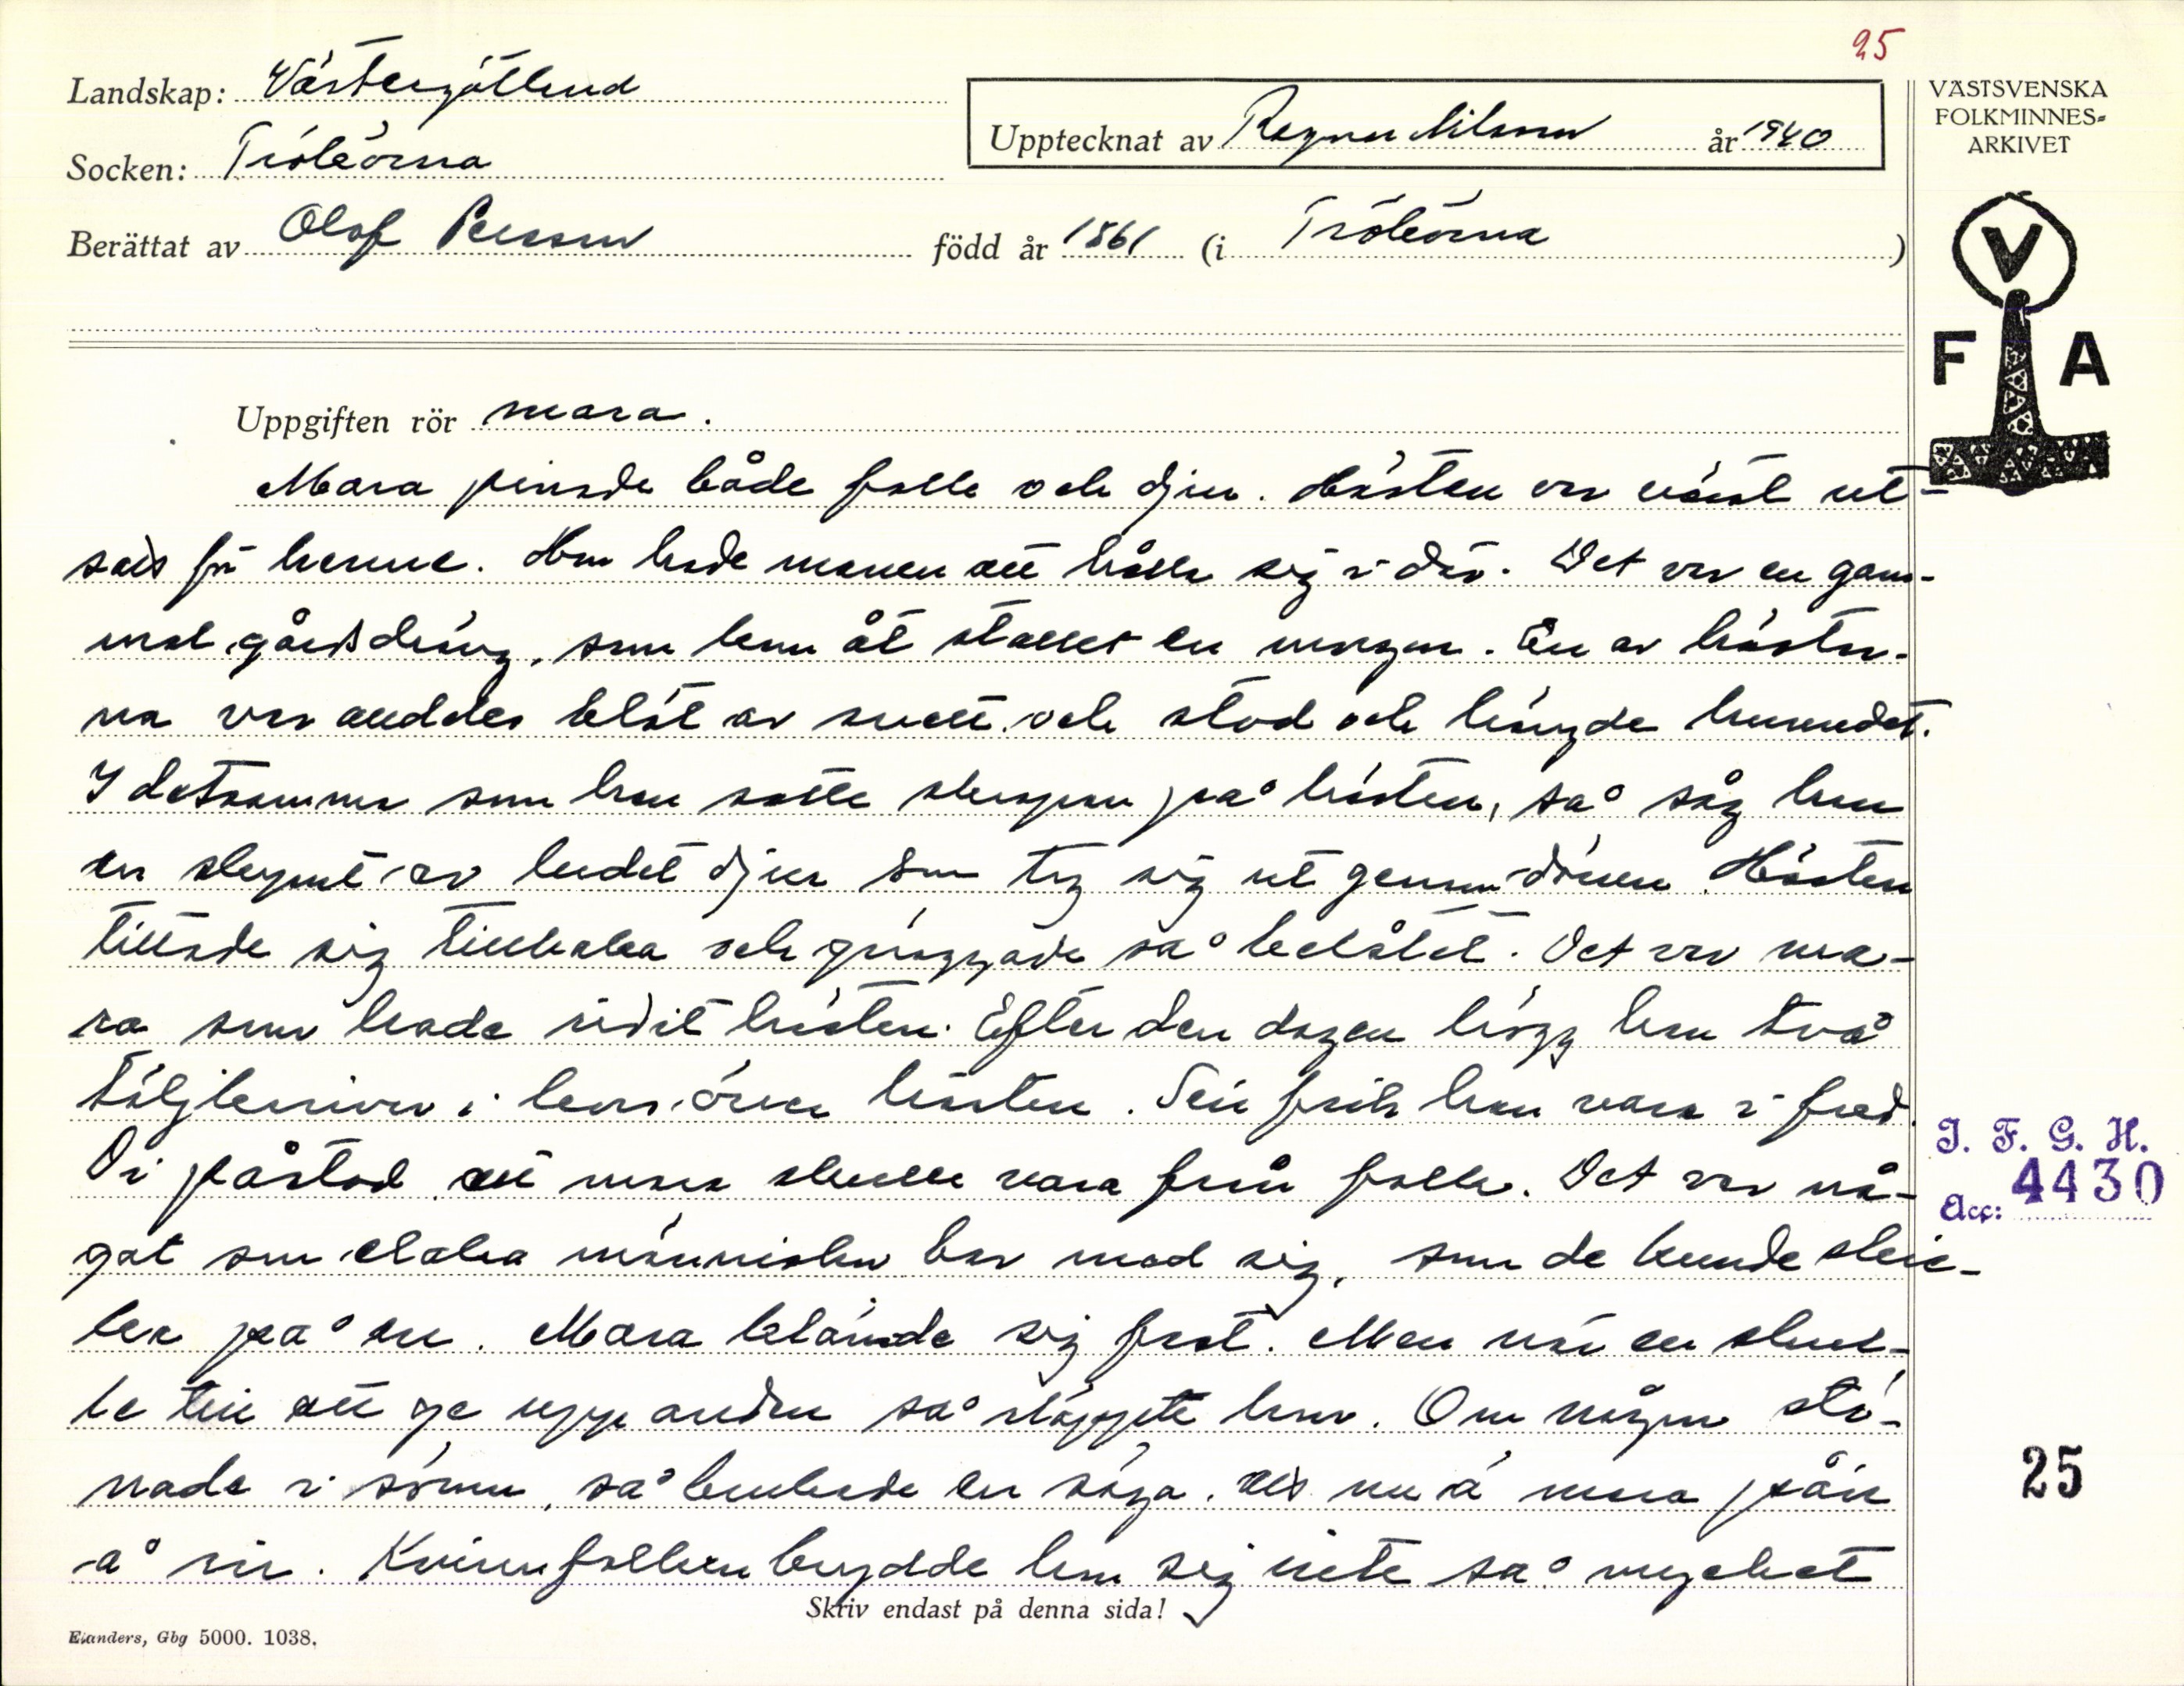 25
Landskap: Västergötland
Socken: Trökörna
Upptecknat av Ragnar Nilsson år 1940
Berättat av Olof Persson född år 1861 (i Trökörna)
VÄSTSVENSKA
FOLKMINNES=
ARKIVET
V
F A
Uppgiften rör mara.
Mara pinade både folk och djur. Hästen var värst ut-
satt för henne. Hon hade manen att hålla sig i där. Det var en gam-
mal gårdsdräng, som kom åt stallet en morgon. En av hästar-
na var alldeles blöt av svett och stod och hängde huvudet.
I detsamma som han satte skrapan på hästen, så såg han
en skymt av ludet djur som tog sig ut genom dörren. Hästen
tittade sig tillbaka och gnäggade så belåtet. Det var ma-
ra som hade ridit hästen. Efter den dagen högg han två
täljknivar i var över hästen. Sen fick han vara i fred.
Di påstod att mara skulle vara från folk. Det var nå-
got som elaka människor bar med sig, som de kunde skic-
ka på en. Mara klämde sig fast. Men när en skul-
le till att ge upp andan så släppte hon. Om någon stö-
nade i sömn, så brukade en säga, att nu ä mara påir
å rir. Kvinnfolken brydde hon sig inte så mycket
I. F. G. H.
Acc: 4430
25
Skriv endast på denna sida!
Elanders, Gbg 5000. 1038.